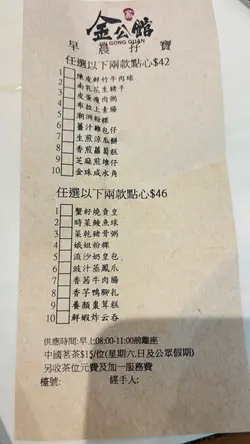 金公館
GONG GUAN
早晨孖寶
任選以下兩款點心$42
1 陳皮鮮竹牛肉球
2 南乳花生豬手
3 皮蛋瘦肉粥
4 布拉上素腸
5 潮洲粉粿
6 薑汁雞包仔
7 生煎涼瓜餅
8 香煎蘿蔔糕
9 芝麻煎堆仔
10 金珠咸水角
任選以下兩款點心$46
1 蟹籽燒賣皇
2 時菜鯪魚球
3 菜乾豬骨粥
4 娥姐粉粿
5 流沙奶皇包
6 豉汁蒸鳳爪
7 香茜牛肉腸
8 香芋鴨腳扎
9 養顏棗茸糕
10 鮮蝦炸云吞
供應時間:早上08:00-11:00前離座
中國茗茶$15/位(星期六.日及公眾假期)
另收茶位元費及加一服務費
檯號: 經手人: